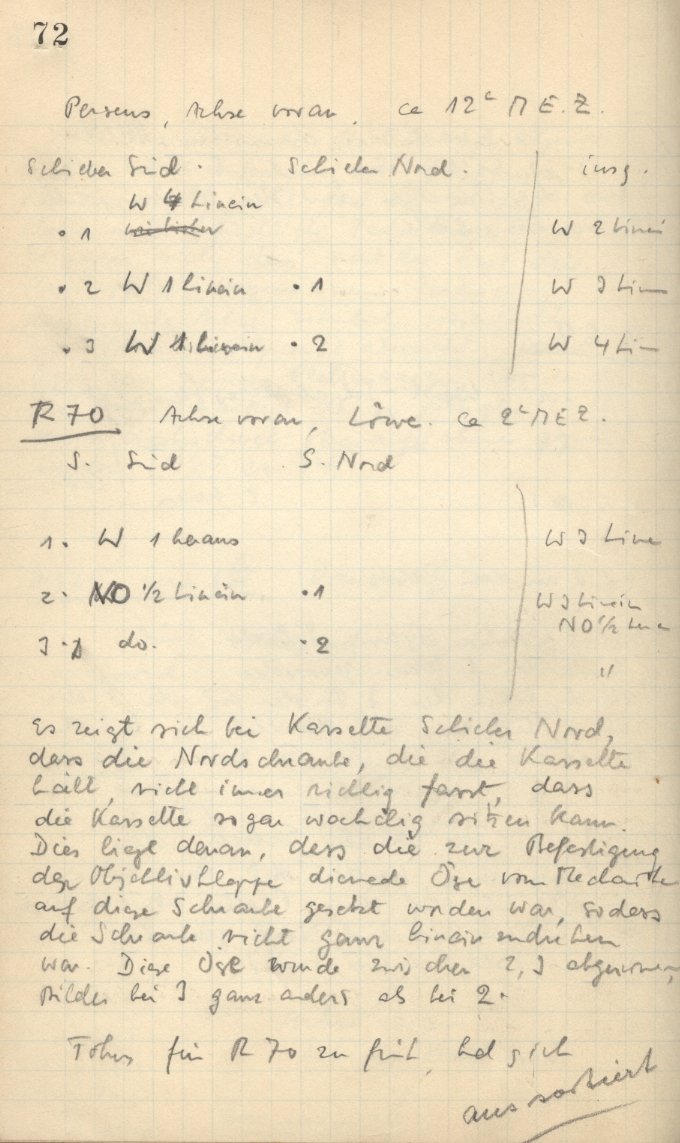 72
Perseus, Achse voran, ca 12h M.E.Z.
Schieber Süd. Schieber Nord. insg.
W 4 hinein
• 1 W 2 hinei
• 2 W 1 hinein • 1 W 3 hin
• 3 W 1 hinein • 2 W 4 hin
R 70 Achse voran, Löwe. ca 2h MEZ.
S. Süd S. Nord
1. W 1 heraus W 3 hine
2. NO 1/2 hinein • 1 W 3 hinein
NO 1/2 hine
3. do. • 2 "
Es zeigt sich bei Kassette Schieber Nord,
dass die Nordschraube, die die Kassette
hält, nicht immer richtig fasst, dass
die Kassette sogar wackelig sitzen kann.
Dies liegt daran, dass die zur Befestigung
der Objektivklappe dienende Öse vom Mechaniker
auf diese Schraube gesetzt worden war, sodass
die Schraube nicht ganz hineinzudrehen
war. Diese Öse wurde zwischen 2, 3 abgenommen,
Bilder bei 3 ganz anders als bei 2.
Fokus für R 70 zu früh, hat sich
aussortiert